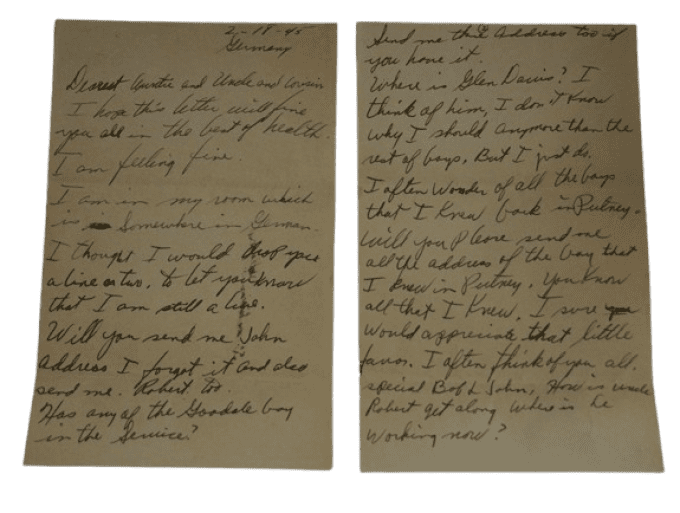 2-18-45
Germany
Dearest Auntie and Uncle and Cousin
I hope this letter will fine
you all in the best of health.
I am feeling fine.
I am in my room which
is Somewhere in German.
I thought I would drop you
a line or two, to let you know
that I am still a live.
Will you send me John
address I forgot it and also
send me. Robert too.
Has any of the Goodale boy
in the Service?
Send me their Address too if
you have it.
Where is Glen Davis? I
think of him, I don't Know
why I should anymore than the
rest of boys, But I just do.
I often Wonder of all the boys
that I Knew back in Putney.
Will you Please send me
all the address of the boy that
I knew in Putney. You Know
all that I Knew. I sure
would appreciate that little
favor. I often think of you all.
special Bob & John, How is uncle
Robert get along Where is he
working now?